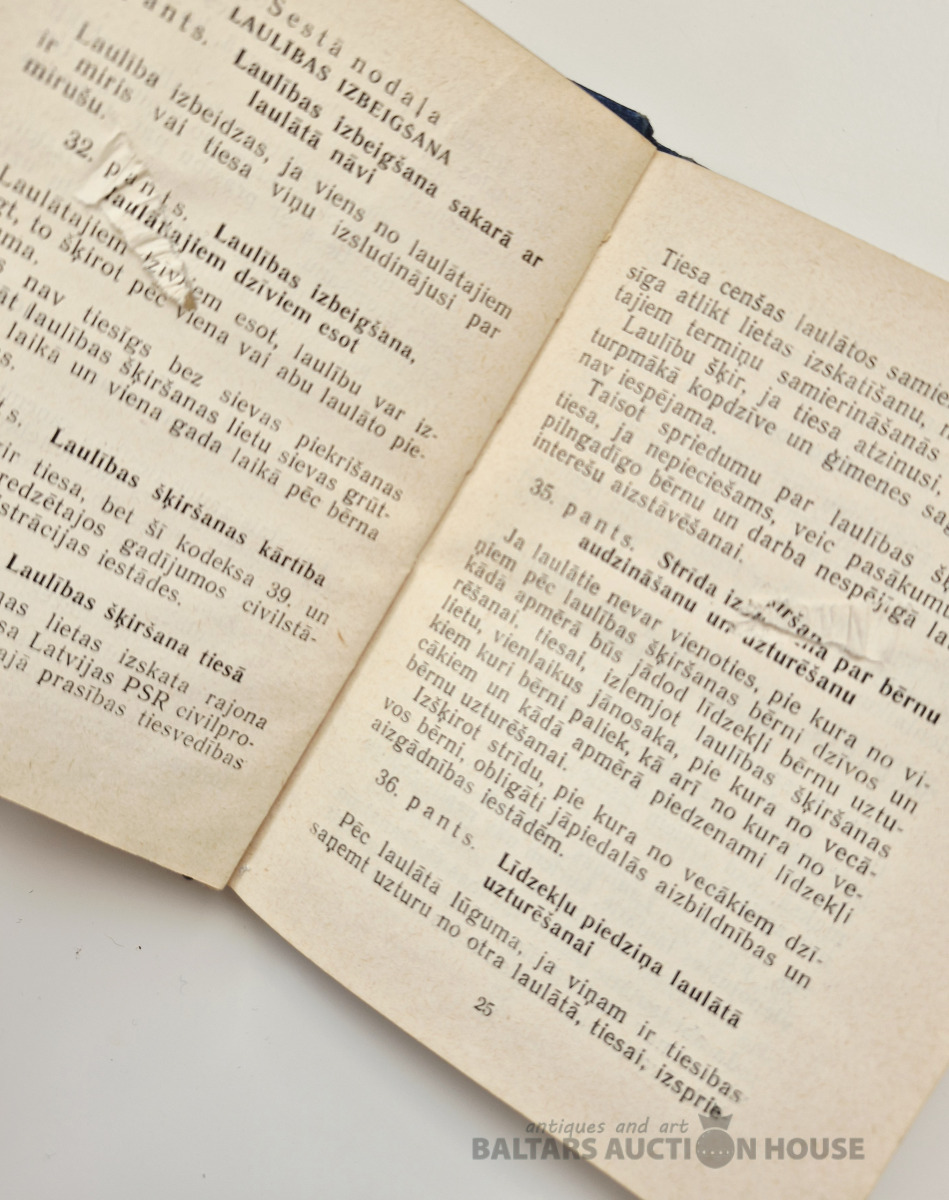 Sestā nodaļa
LAULĪBAS IZBEIGŠANA
pants. Laulības izbeigšana sakarā ar
laulātā nāvi
Laulība izbeidzas, ja viens no laulātajiem
ir miris vai tiesa viņu izsludinājusi par
mirušu.
32. pants. Laulības izbeigšana,
laulātajiem dzīviem esot
Laulātajiem dzīviem esot, laulību var iz-
to šķirot pēc viena vai abu laulāto pie-
nav tiesīgs bez sievas piekrišanas
laulības šķiršanas lietu sievas grūt-
laikā un viena gada laikā pēc bērna
Laulības šķiršanas kārtība
tiesa, bet šī kodeksa 39. un
gadījumos civilstā-
iestādes.
Laulību šķiršana tiesā
lietas izskata rajona
Latvijas PSR civilpro-
prasības tiesvedības
Tiesa cenšas laulātos
atlikt lietas izskatīšanu,
tajiem termiņu samierināšanās
Laulību šķir, ja tiesa atzinusi,
turpmākā kopdzīve un ģimenes
nav iespējama.
Taisot spriedumu par laulības
tiesa, ja nepieciešams, veic
pilngadīgo bērnu un darba nespējīgā
interešu aizstāvēšanai.
35. pants. Strīda izšķiršana par bērnu
audzināšanu un uzturēšanu
Ja laulātie nevar vienoties, pie kura no vi-
ņiem pēc laulības šķiršanas bērni dzīvos un
kādā apmērā būs jādod līdzekļi bērnu uztu-
rēšanai, tiesai, izlemjot laulības šķiršanas
lietu, vienlaikus jānosaka, pie kura no vecā-
kiem kuri bērni paliek, kā arī no kura no ve-
cākiem un kādā apmērā piedzenami līdzekļi
bērnu uzturēšanai.
Izšķirot strīdu, pie kura no vecākiem dzī-
vos bērni, obligāti jāpiedalās aizbildnības un
aizgādnības iestādēm.
36. pants. Līdzekļu piedziņa laulātā
uzturēšanai
Pēc laulātā lūguma, ja viņam ir tiesības
saņemt uzturu no otra laulātā, tiesai, izsprie-
25
antiques and art
BALTARS AUCTION HOUSE